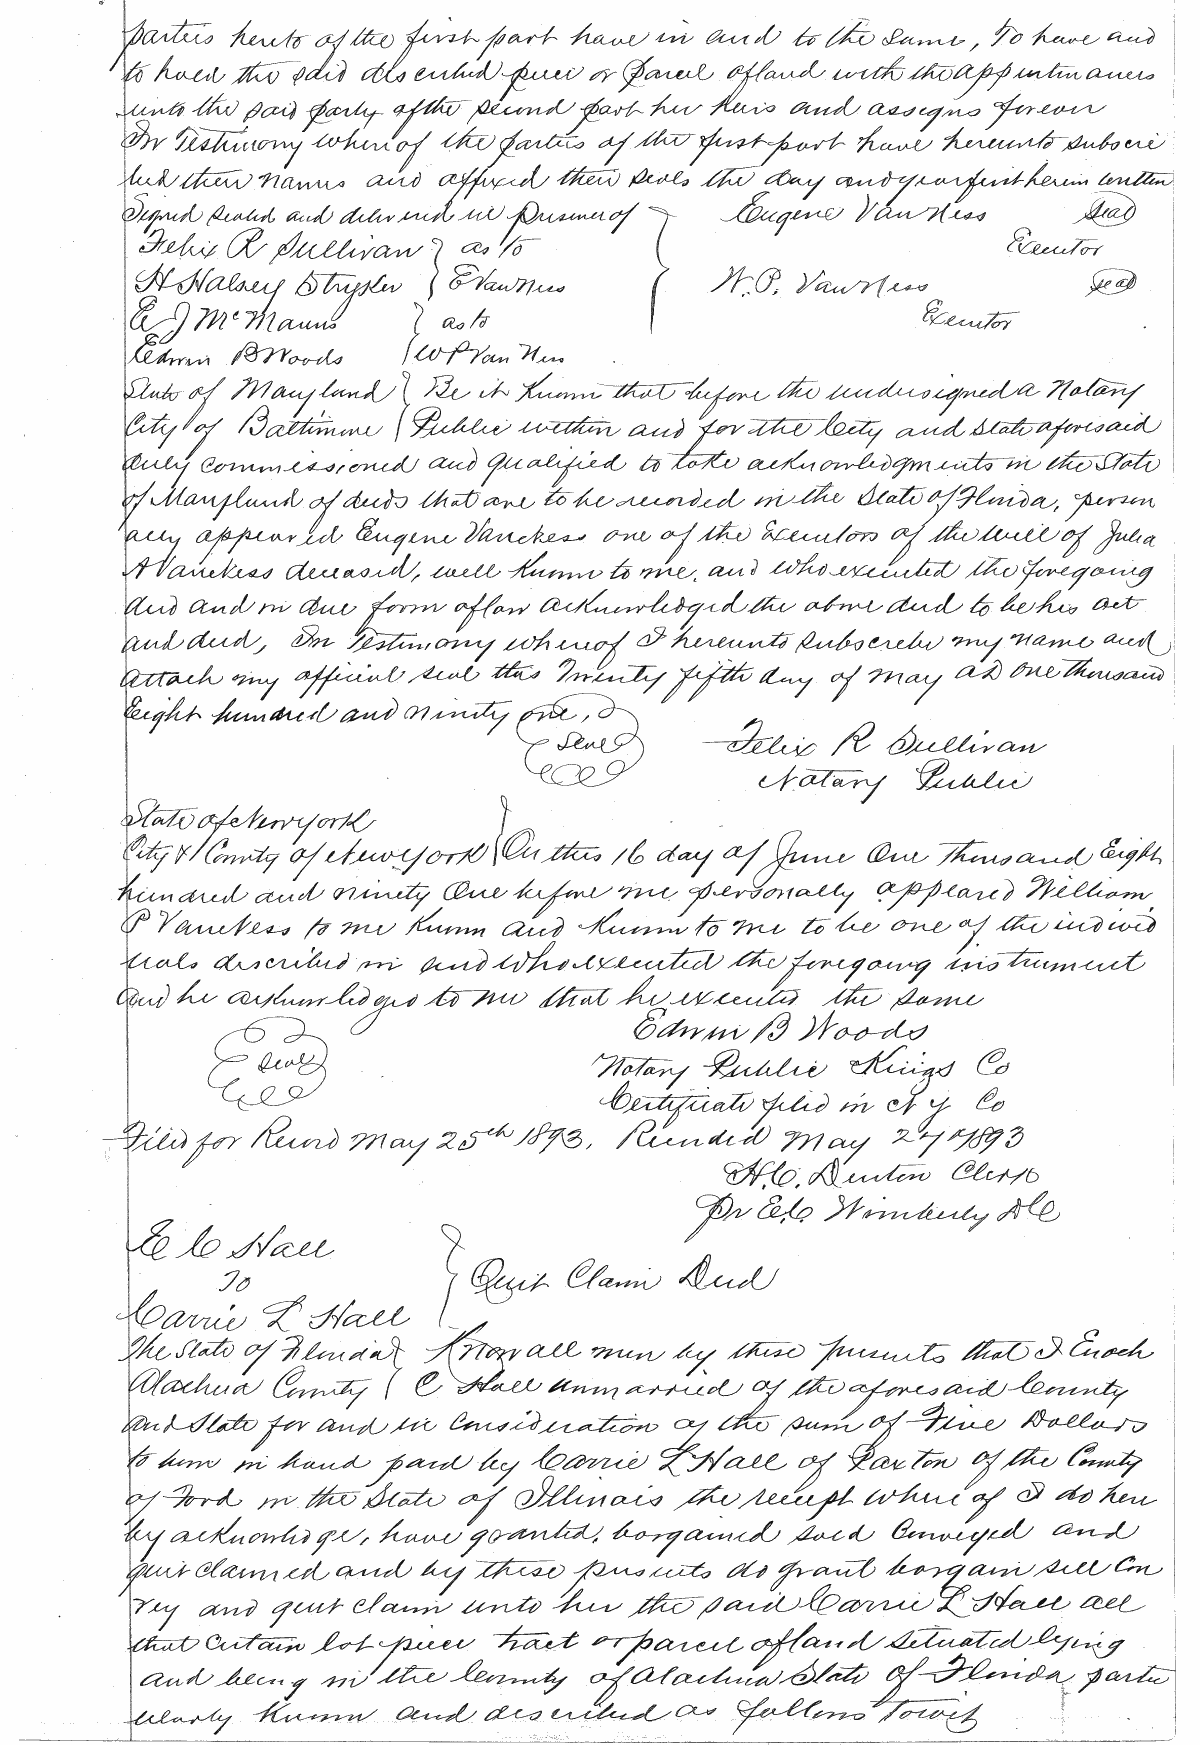 parties hereto of the first part have in and to the same, To have and
to hold the said described piece or parcel of land with the appurtenances
unto the said party of the second part her heirs and assigns forever
In Testimony whereof the parties of the first part have hereunto subscri
bed their names and affixed their seals the day and year first herein written
Signed sealed and delivered in presence of Eugene Van Ness Seal
Felix R Sullivan } as to Executor
H Halsey Stryker } E Van Ness W. P. Van Ness Seal
E J McManns } as to Executor
Edwin B Woods } W P Van Ness
State of Maryland } Be it Known that before the undersigned a Notary
City of Baltimore } Public within and for the City and State aforesaid
duly commissioned and qualified to take acknowledgments in the State
of Maryland of deeds that are to be recorded in the State of Florida, person
ally appeared Eugene VanNess one of the Executors of the will of Julia
A VanNess deceased, well Known to me, and who executed the foregoing
deed and in due form of law acknowledged the above deed to be his act
and deed, In Testimony whereof I hereunto subscribe my name and
attach my official seal this Twenty fifth day of May AD one thousand
Eight hundred and ninety one,
Seal Felix R Sullivan
Notary Public
State of New York
City & County of New York } On this 16 day of June One Thousand Eight
hundred and ninety One before me personally appeared William
P VanNess to me Known and Known to me to be one of the individ
uals described in and who executed the foregoing instrument
and he acknowledged to me that he executed the same
Edwin B Woods
Seal Notary Public Kings Co
Certificate filed in N Y Co
Filed for Record May 25th 1893. Recorded May 27th 1893
H. C. Denton Clerk
Pr E.C. Wimberly DC
E C Hall
To } Quit Claim Deed
Carrie L Hall
The State of Florida } Know all men by these presents that I Enoch
Alachua County } C Hall unmarried of the aforesaid County
and State for and in Consideration of the sum of Five Dollars
to him in hand paid by Carrie L Hall of Paxton of the County
of Ford in the State of Illinois the receipt where of I do here
by acknowledge, have granted, bargained sold Conveyed and
quit claimed and by these presents do grant bargain sell Con
vey and quit claim unto her the said Carrie L Hall all
that certain lot piece tract or parcel of land situated lying
and being in the County of Alachua State of Florida particu
ularly Known and described as follows Towit